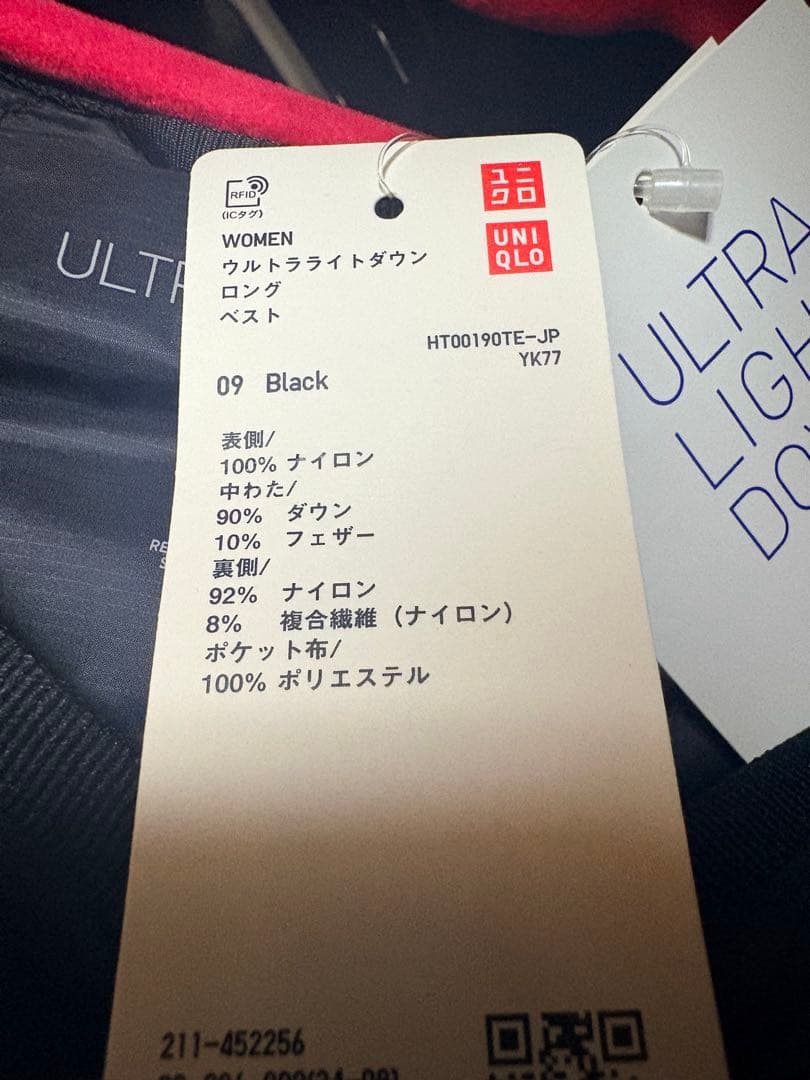 RFID
(ICタグ)
ユニ
クロ
UNI
QLO
WOMEN
ウルトラライトダウン
ロング
ベスト
HT00190TE-JP
YK77
09 Black
表側/
100% ナイロン
中わた/
90% ダウン
10% フェザー
裏側/
92% ナイロン
8% 複合繊維（ナイロン）
ポケット布/
100% ポリエステル
211-452256
ULTRA